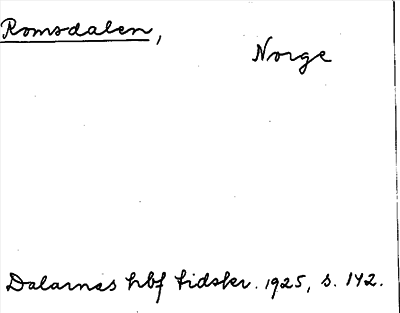 Romsdalen,
Norge
Dalarnas hbf tidskr. 1925, s. 142.